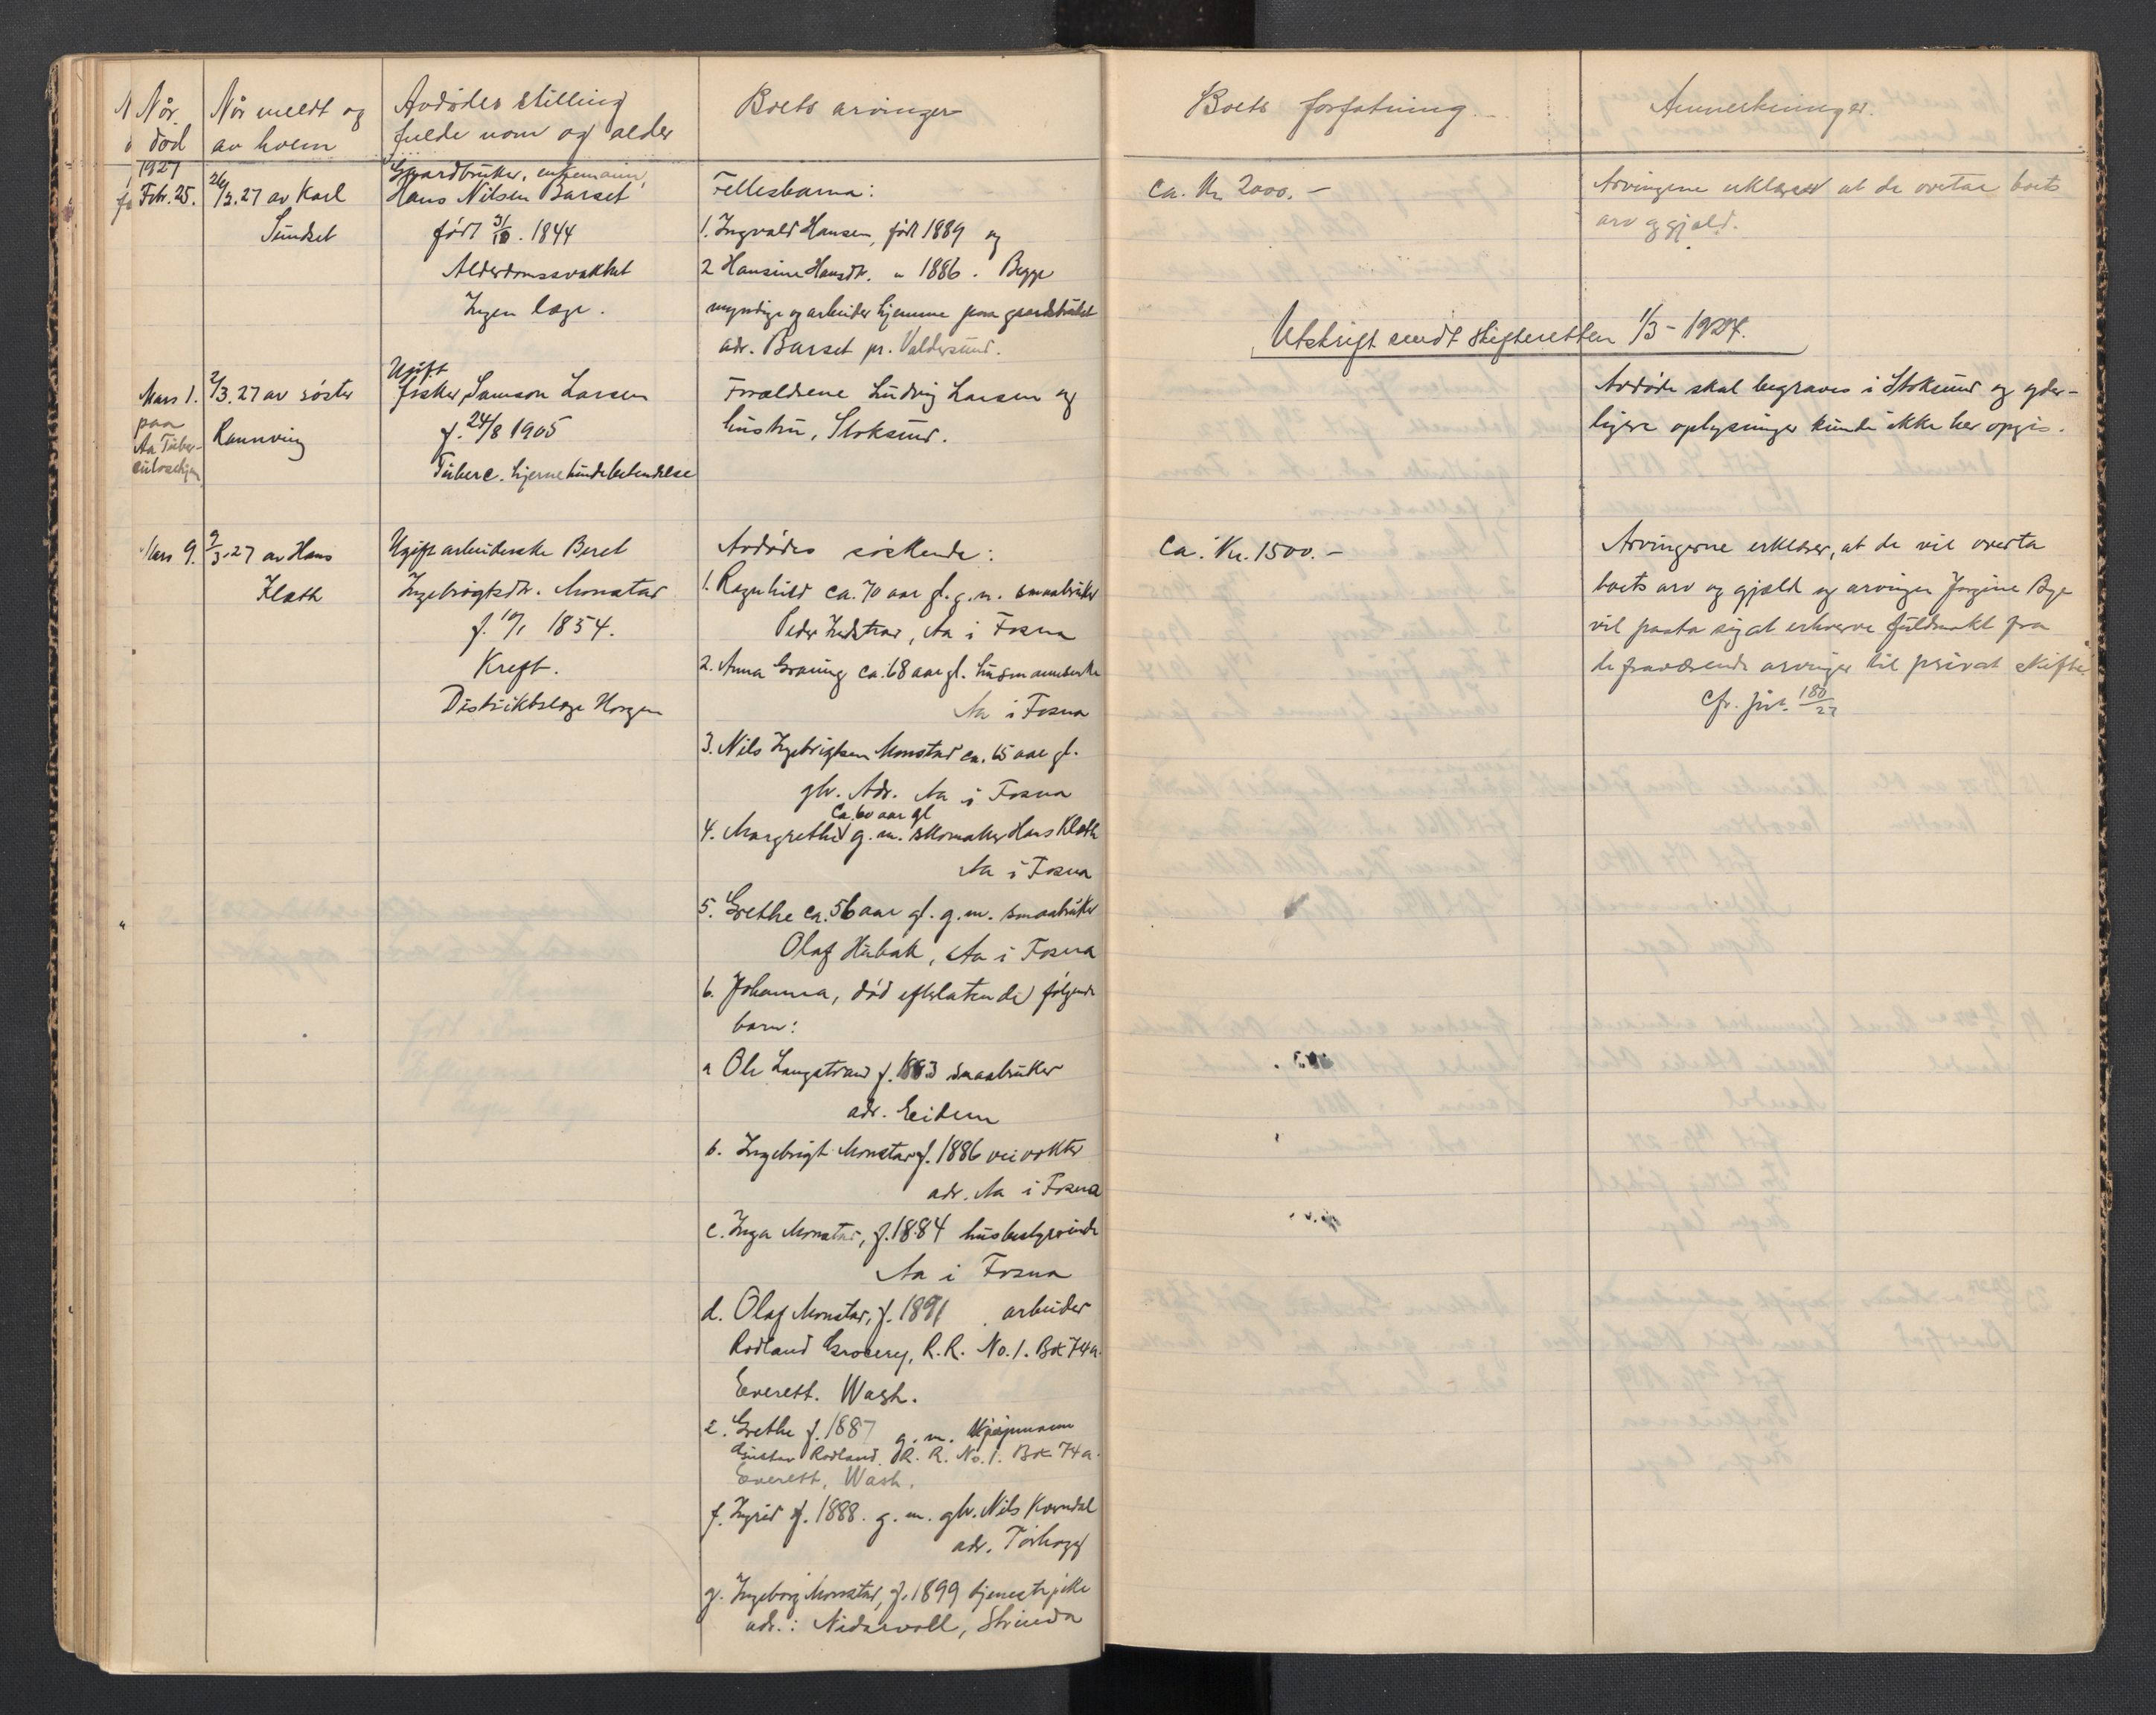 Når
død
Når meldt og
av hvem
Avdødes stilling
fulde navn og alder
Boets arvinger
Boets forfatning
Anmerkninger.
1927
Febr. 25.
26/2.27 av Karl
Sundset
Gaardbruker, enkemann,
Hans Nilsen Barset
født 31/10. 1844
Alderdomssvakhet
Ingen læge.
Fellesbarna:
1. Ingvald Hansen, født 1889 og
2 Hansine Hansdtr. " 1886. Begge
myndige og arbeider hjemme paa gaardsbruket
adr. Barset pr. Valdersund.
ca. Kr. 2000.-
Arvingene erklærer at de overtar boets
arv og gjæld.
Utskrift sendt skifteretten 1/3-1927.
Mars 1.
paa
Aa Tuber-
culosehjem
2/3.27 av søster
Rannveig
Ugift
fisker Samson Larsen
f. 24/8 1905
Tuberc. hjernehindebetendelse
Forældrene Ludvig Larsen og
hustru, Stoksund.
Avdøde skal begraves i Stoksund og yder-
ligere oplysninger kunde ikke her opgis.
Mars 9.
9/3.27 av Hans
Klæth
Ugift arbeiderske Beret
Ingebrigtsdtr. Monstad
f. 10/1 1854.
Kreft.
Distriktslæge Horgen
Avdødes søskende:
1. Ragnhild ca. 70 aar gl. g.m. smaabruker
Peder Indstrand, Aa i Fosna
2. Anna Graning ca. 68 aar gl. husmannsenke
Aa i Fosna
3. Nils Ingebrigtsen Monstad ca. 65 aar gl.
gbr. Adr. Aa i Fosna
ca. 60 aar gl
4. Margrethe g.m. skomaker Hans Klæth
Aa i Fosna
5. Grethe ca. 56 aar gl. g.m. smaabruker
Olaf Hubak, Aa i Fosna
6. Johanna, død efterlatende følgende
barn:
a Ole Langstrand f. 1883 smaabruker
adr. Eidem
b. Ingebrigt Monstad f. 1886 veivokter
adr. Aa i Fosna
c. Inga Monstad, f. 1884 husbestyrerinde
Aa i Fosna
d. Olaf Monstad, f. 1891 arbeider
Rodland Grocery, R.R. No. 1. Box 74a.
Everett. Wash.
e. Grethe f. 1887 g.m. kjøpmann
Gustav Rodland. R.R. No. 1. Box 74a.
Everett, Wash.
f. Ingrid f. 1888. g.m. gbr. Nils Kvendal
adr. Tørhogg
g. Ingeborg Monstad, f. 1899 tjenestepike
adr.: Nidarvoll, Strinda
ca. Kr. 1500.-
Arvingerne erklærer, at de vil overta
boets arv og gjæld og arvingen Jørgine Bye
vil paata sig at erhverve fuldmakt fra
de fraværende arvinger til privat skifte.
Cfr. jur. 180/27